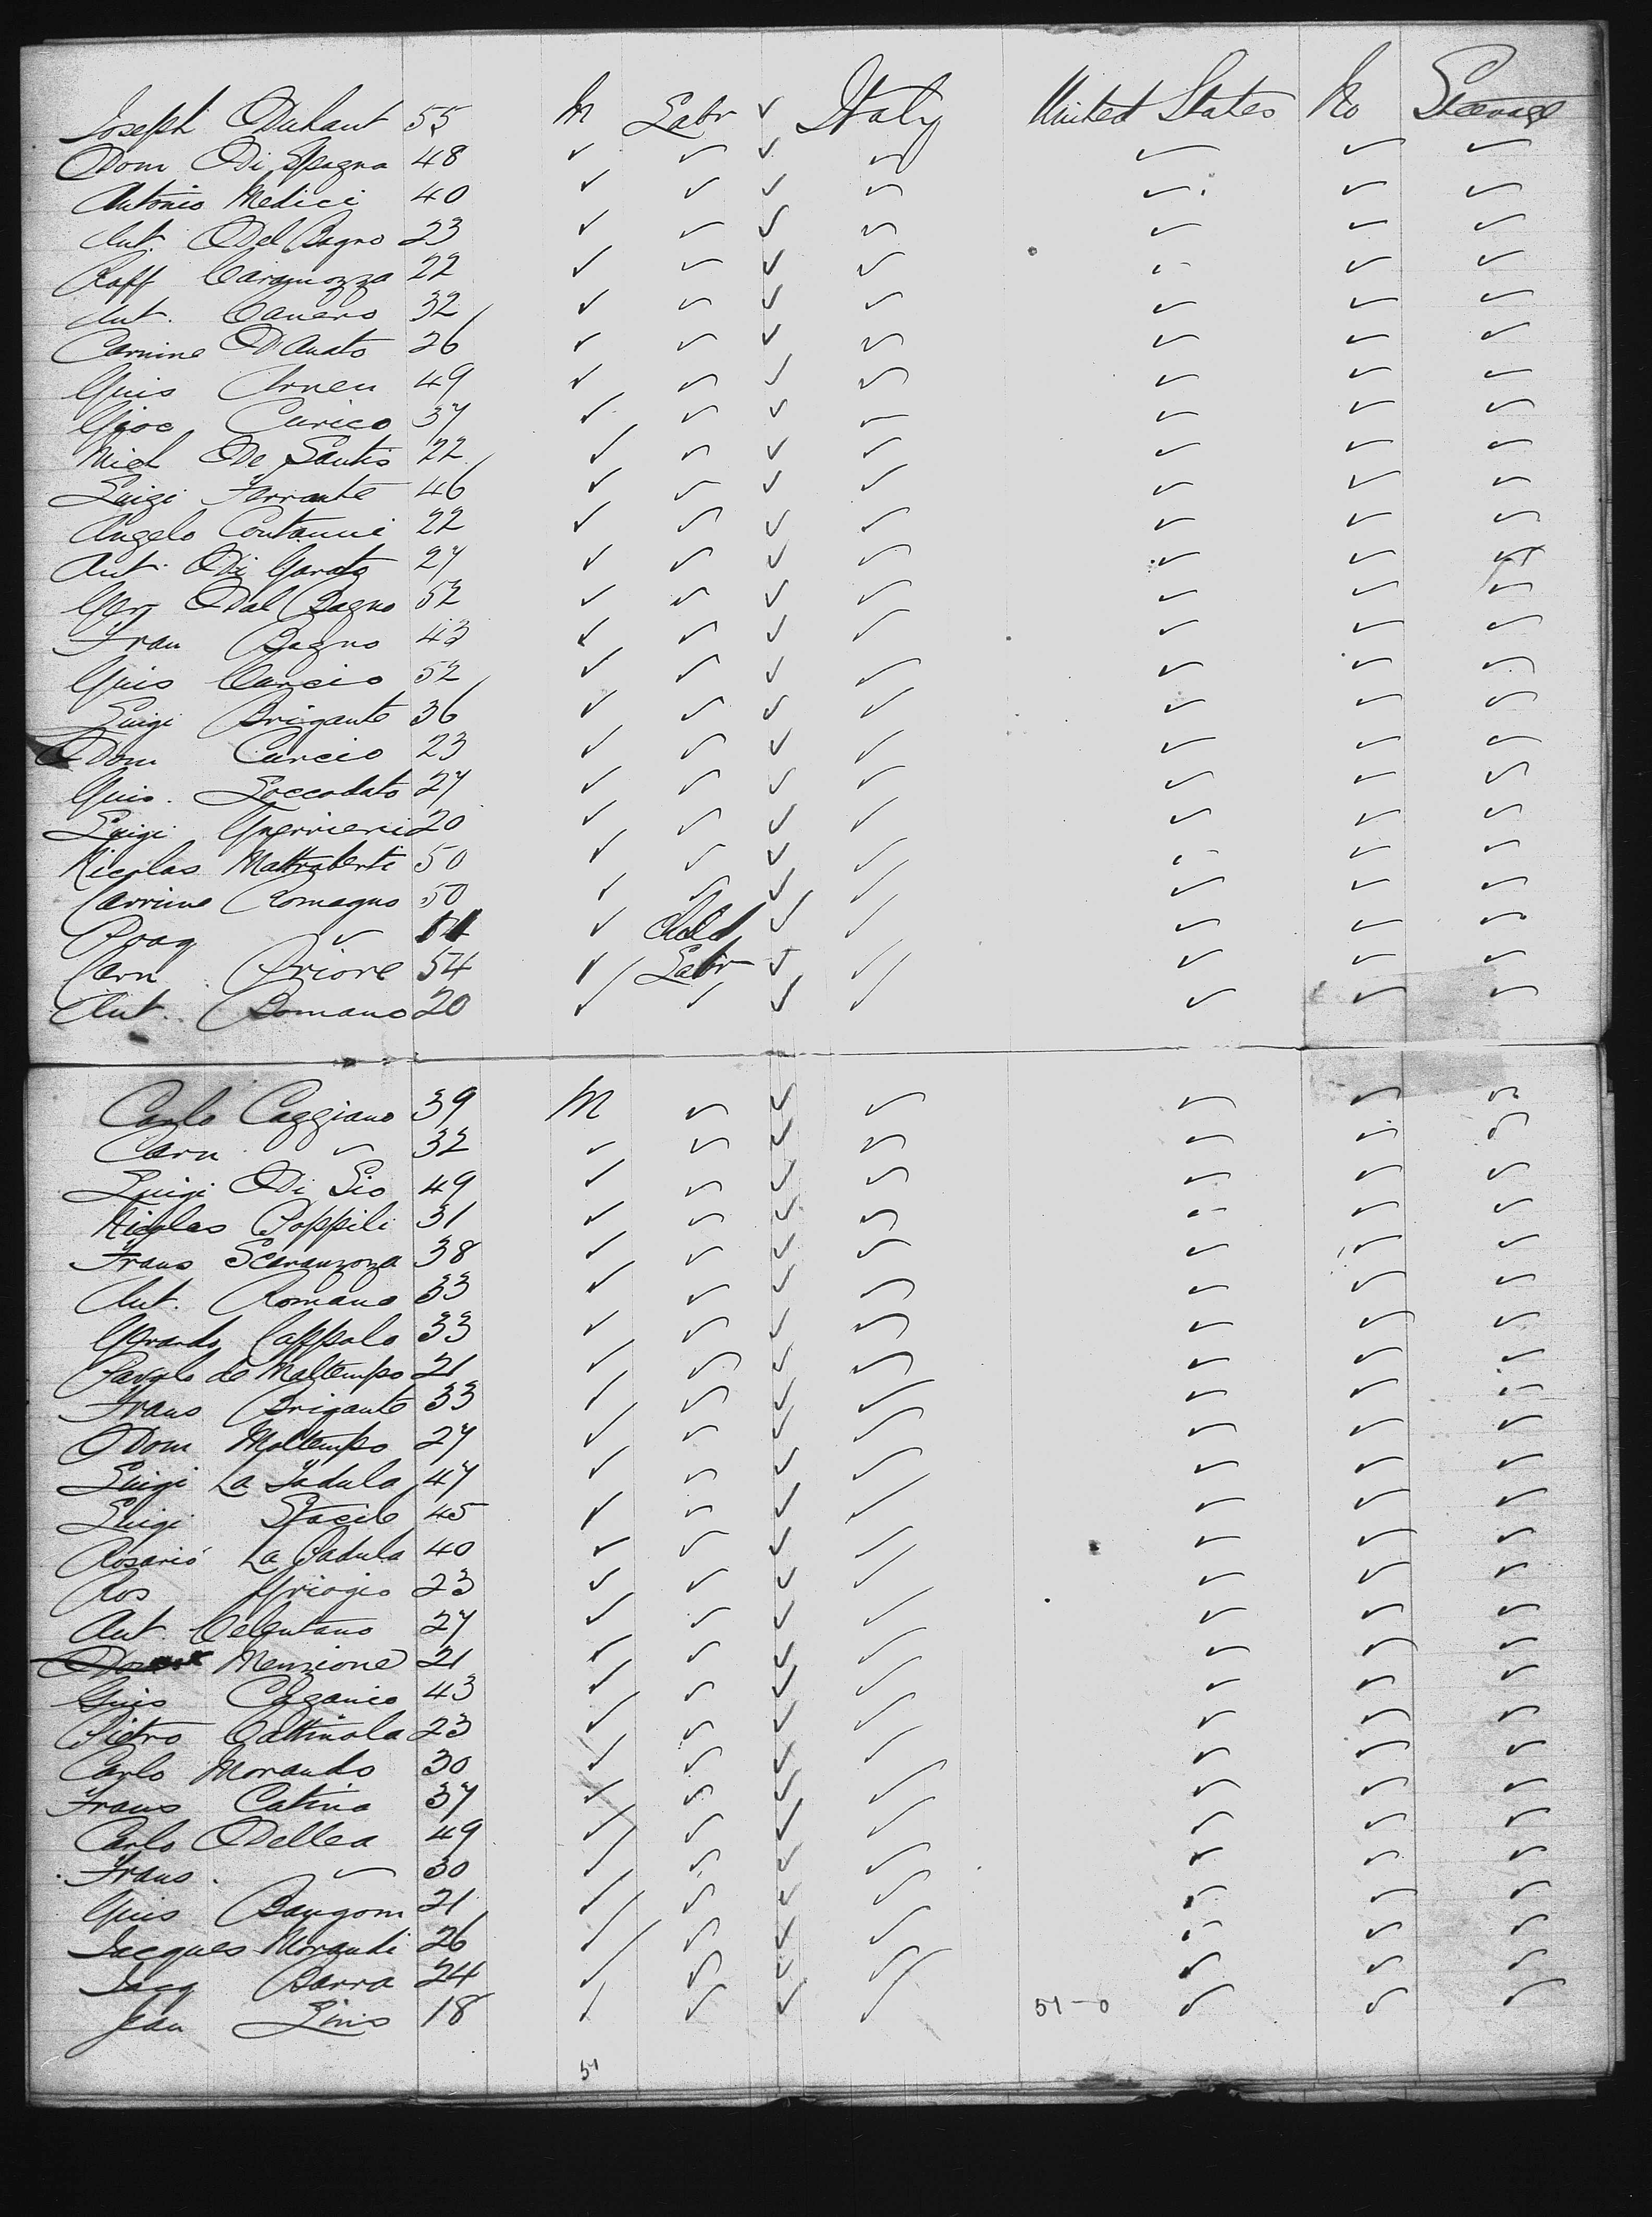 Joseph Duhaut 55 M Labr ✓ Italy United States No Steerage
Dom Di Spagna 48 ✓ ✓ ✓ ✓ ✓ ✓ ✓
Antonio Medici 40 ✓ ✓ ✓ ✓ ✓ ✓ ✓
Ant. Del Bagno 23 ✓ ✓ ✓ ✓ ✓ ✓ ✓
Raff Caramozza 22 ✓ ✓ ✓ ✓ ✓ ✓ ✓
Ant. Canero 32 ✓ ✓ ✓ ✓ ✓ ✓ ✓
Carmine D'Amato 26 ✓ ✓ ✓ ✓ ✓ ✓ ✓
Guis 49 ✓ ✓ ✓ ✓ ✓ ✓ ✓
Gioc Curico 37 ✓ ✓ ✓ ✓ ✓ ✓ ✓
Mich De Santis 22 ✓ ✓ ✓ ✓ ✓ ✓ ✓
Luigi Ferrante 46 ✓ ✓ ✓ ✓ ✓ ✓ ✓
Angelo 22 ✓ ✓ ✓ ✓ ✓ ✓ ✓
Ant. Di 27 ✓ ✓ ✓ ✓ ✓ ✓ ✓
Ger Dal Bagno 52 ✓ ✓ ✓ ✓ ✓ ✓ ✓
Fran Bagno 43 ✓ ✓ ✓ ✓ ✓ ✓ ✓
Guis Curcio 52 ✓ ✓ ✓ ✓ ✓ ✓ ✓
Luigi Brigante 36 ✓ ✓ ✓ ✓ ✓ ✓ ✓
Dom Curcio 23 ✓ ✓ ✓ ✓ ✓ ✓ ✓
Guis. Loccodato 27 ✓ ✓ ✓ ✓ ✓ ✓ ✓
Luigi Guerrieri 20 ✓ ✓ ✓ ✓ ✓ ✓ ✓
Nicolas 50 ✓ ✓ ✓ ✓ ✓ ✓ ✓
Carmine Romagno 50 ✓ ✓ ✓ ✓ ✓ ✓ ✓
✓ 11 ✓ Child ✓ ✓ ✓ ✓ ✓
Carn Priore 54 ✓ Labr ✓ ✓ ✓ ✓ ✓
Ant. Romano 20 ✓ ✓ ✓ ✓ ✓ ✓ ✓
Carlo Caggiano 39 M ✓ ✓ ✓ ✓ ✓ ✓
Carn ✓ 32 ✓ ✓ ✓ ✓ ✓ ✓ ✓
Luigi Di Sio 49 ✓ ✓ ✓ ✓ ✓ ✓ ✓
Nicolas Poppili 31 ✓ ✓ ✓ ✓ ✓ ✓ ✓
Frans Scaranzona 38 ✓ ✓ ✓ ✓ ✓ ✓ ✓
Ant. Romano 33 ✓ ✓ ✓ ✓ ✓ ✓ ✓
Gerardo Coppola 33 ✓ ✓ ✓ ✓ ✓ ✓ ✓
Pavolo de Maltempo 21 ✓ ✓ ✓ ✓ ✓ ✓ ✓
Frans Brigante 33 ✓ ✓ ✓ ✓ ✓ ✓ ✓
Dom Moltempo 27 ✓ ✓ ✓ ✓ ✓ ✓ ✓
Luigi La Padula 47 ✓ ✓ ✓ ✓ ✓ ✓ ✓
Luigi Stacile 45 ✓ ✓ ✓ ✓ ✓ ✓ ✓
Rosario La Padula 40 ✓ ✓ ✓ ✓ ✓ ✓ ✓
Ros 23 ✓ ✓ ✓ ✓ ✓ ✓ ✓
Ant. Celentano 27 ✓ ✓ ✓ ✓ ✓ ✓ ✓
Menzione 21 ✓ ✓ ✓ ✓ ✓ ✓ ✓
Guis 43 ✓ ✓ ✓ ✓ ✓ ✓ ✓
Pietro Cattinola 23 ✓ ✓ ✓ ✓ ✓ ✓ ✓
Carlo Morando 30 ✓ ✓ ✓ ✓ ✓ ✓ ✓
Frans Catina 37 ✓ ✓ ✓ ✓ ✓ ✓ ✓
Carlo Dellea 49 ✓ ✓ ✓ ✓ ✓ ✓ ✓
Frans. ✓ 30 ✓ ✓ ✓ ✓ ✓ ✓ ✓
Guis Baugom 21 ✓ ✓ ✓ ✓ ✓ ✓ ✓
Jacques Morandi 26 ✓ ✓ ✓ ✓ ✓ ✓ ✓
Jacq Barra 24 ✓ ✓ ✓ ✓ ✓ ✓ ✓
Jean 18 ✓ ✓ ✓ ✓ 51-0 ✓ ✓ ✓
51